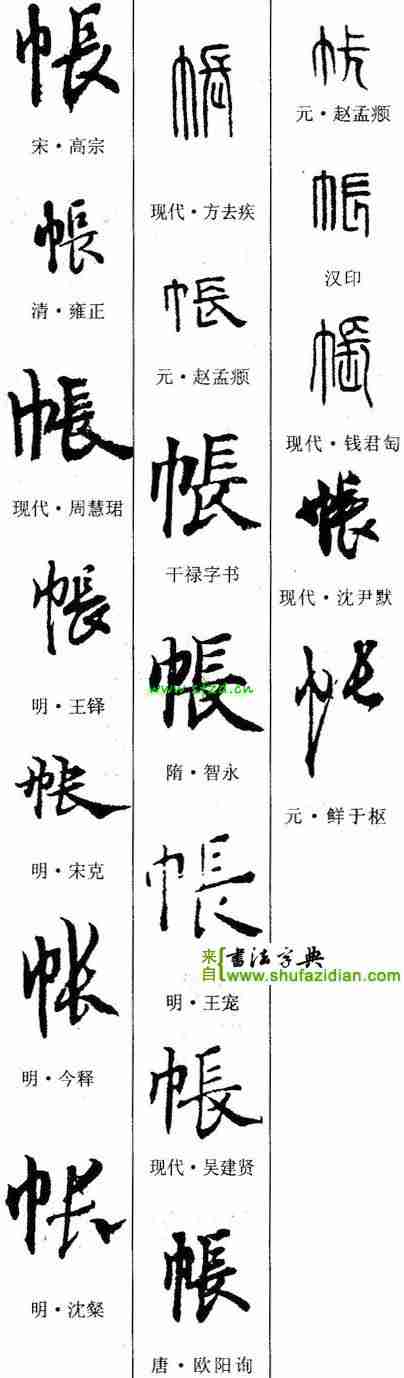 帳
宋·高宗
帳
清·雍正
帳
现代·周慧珺
帳
明·王铎
帳
明·宋克
帳
明·今释
帳
明·沈粲
帳
现代·方去疾
帳
元·赵孟頫
帳
干禄字书
帳
www.sfzd.cn
隋·智永
帳
明·王宠
帳
现代·吴建贤
帳
唐·欧阳询
帳
元·赵孟頫
帳
汉印
帳
现代·钱君匋
帳
现代·沈尹默
帳
元·鲜于枢
来自
书法字典
www.shufazidian.com